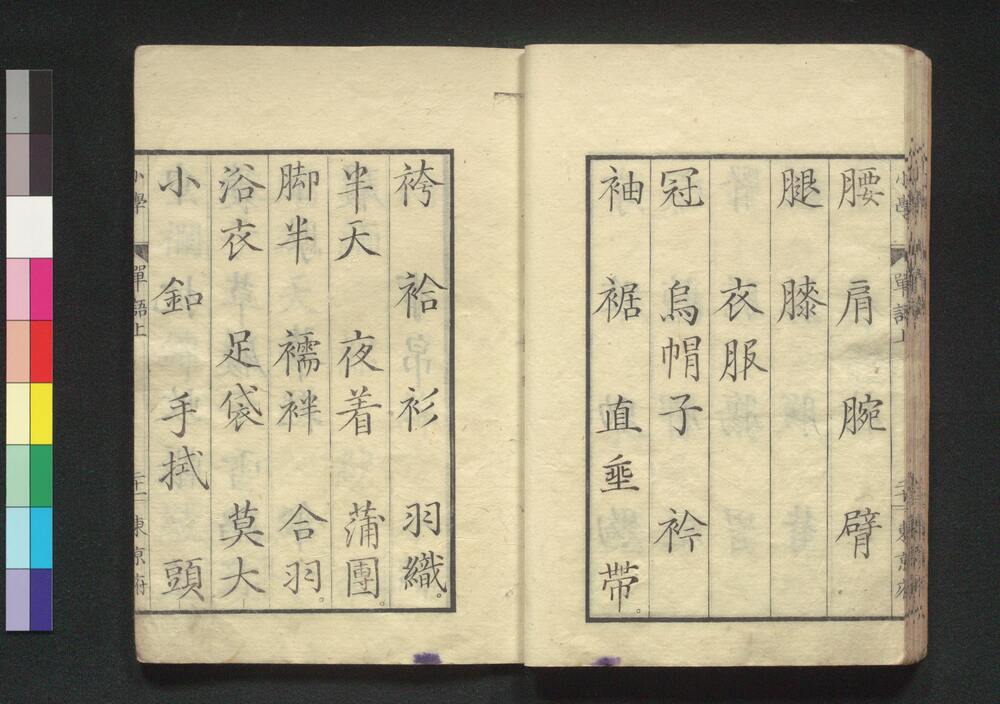 腰 肩 腕 臂
腿 膝
衣服
冠 烏帽子 衿
袖 裾 直垂 帯。
袴 袷 衫 羽織。
半天 夜着 蒲團。
脚半 襦袢 合羽。
浴衣 足袋 莫大
小 釦 手拭 頭
小學 單語上 東京府